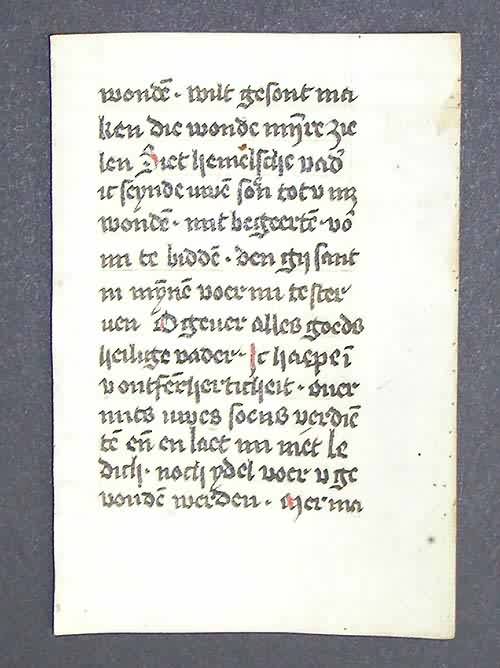 wondē · wilt gesont ma
ken die wonde mijnre zie
len Siet hemelsche vad'
ic seynde uwē soen tot v mz
wondē · mit begeertē · vō
mi te biddē · den gij sant
in mijnē voer mi te ster
uen O geuer alles goeds
heilige vader · Ic haepe ī
v ontfērherticheit · ouer
mits uwes soens verdiē
tē eñ en laet mi niet le
dich · noch ydel voer v ge
vondē werden · Mer ma